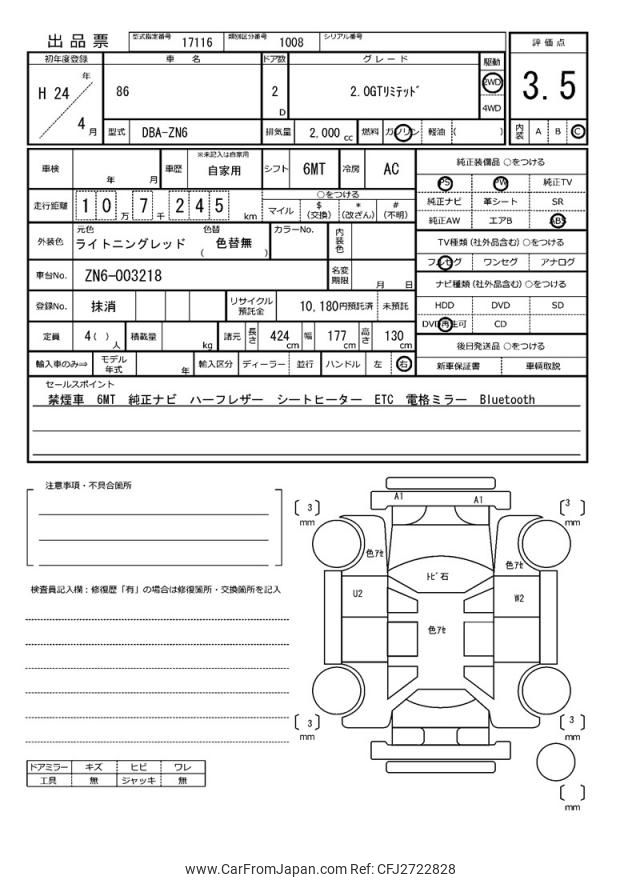 出品票 型式指定番号 17116 類別区分番号 1008 シリアル番号
初年度登録 車名 ドア数 グレード 駆動 評価点
H 24 年 4 月 86 2 D 2.0GTリミテッド 2WD 4WD 3.5
型式 DBA-ZN6 排気量 2,000 cc 燃料 ガソリン 軽油 ( ) 内装 A B C
車検 年 月 車歴 ※未記入は自家用 自家用 シフト 6MT 冷房 AC
走行距離 10 万 7 千 245 km ○をつける マイル $ (交換) * (改ざん) # (不明)
外装色 元色 ライトニングレッド 色替 ( 色替無 ) カラーNo. 内装色
車台No. ZN6-003218 名変期限 月 日
登録No. 抹消 リサイクル預託金 10,180円預託済 未預託
定員 4 ( ) 人 積載量 kg 諸元 長さ 424 cm 幅 177 cm 高さ 130 cm
輸入車のみ⇒ モデル年式 年 輸入区分 ディーラー 並行 ハンドル 左 右
純正装備品 ○をつける
PS PW 純正TV
純正ナビ 革シート SR
純正AW エアB ABS
TV種類 (社外品含む) ○をつける
フルセグ ワンセグ アナログ
ナビ種類 (社外品含む) ○をつける
HDD DVD SD
DVD再生可 CD
後日発送品 ○をつける
新車保証書 車輌取説
セールスポイント
禁煙車 6MT 純正ナビ ハーフレザー シートヒーター ETC 電格ミラー Bluetooth
注意事項・不具合箇所
検査員記入欄：修復歴「有」の場合は修復箇所・交換箇所を記入
ドアミラー キズ ヒビ ワレ
工具 無 ジャッキ 無
A1 A1
[ 3 ] mm [ 3 ] mm
色アセ 色アセ
トビ石
U2 W2
色アセ
[ 3 ] mm [ 3 ] mm
[ ] mm
www.CarFromJapan.com Ref: CFJ2722828